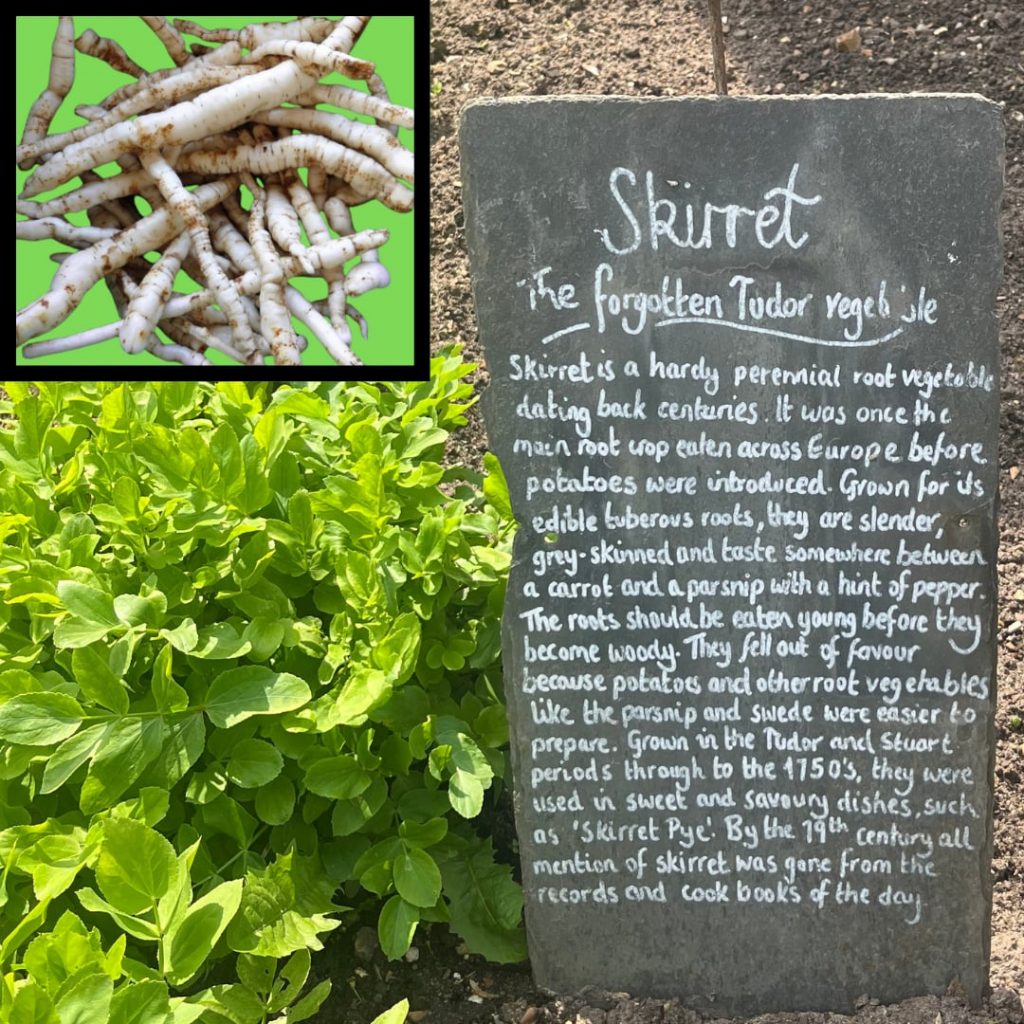 Skirret
The forgotten Tudor vegetable
Skirret is a hardy perennial root vegetable
dating back centuries. It was once the
main root crop eaten across Europe before
potatoes were introduced. Grown for its
edible tuberous roots, they are slender,
grey-skinned and taste somewhere between
a carrot and a parsnip with a hint of pepper.
The roots should be eaten young before they
become woody. They fell out of favour
because potatoes and other root vegetables
like the parsnip and swede were easier to
prepare. Grown in the Tudor and Stuart
periods through to the 1750's, they were
used in sweet and savoury dishes, such
as 'Skirret Pye'. By the 19th century all
mention of skirret was gone from the
records and cook books of the day